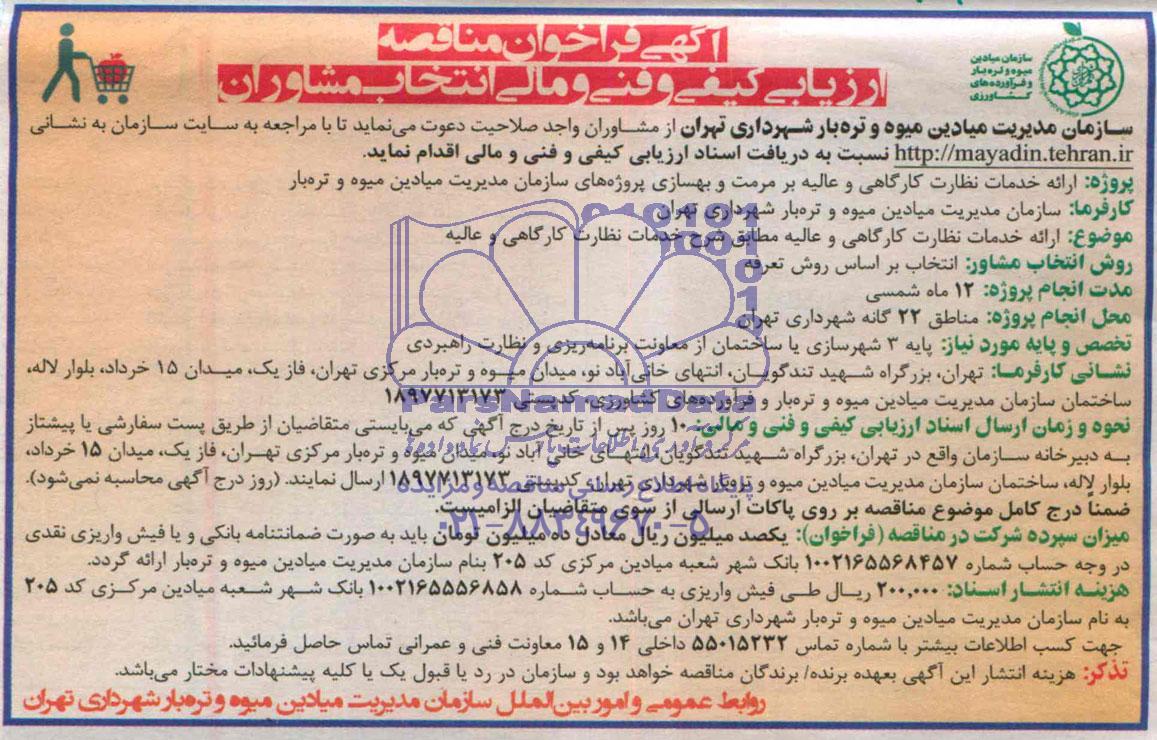 آگهی فراخوان مناقصه
ارزیابی کیفی و فنی و مالی انتخاب مشاوران
سازمان میادین
میوه و تره‌بار
و فرآورده‌های
کشاورزی
سازمان مدیریت میادین میوه و تره‌بار شهرداری تهران از مشاوران واجد صلاحیت دعوت می‌نماید تا با مراجعه به سایت سازمان به نشانی
http://mayadin.tehran.ir نسبت به دریافت اسناد ارزیابی کیفی و فنی و مالی اقدام نماید.
پروژه: ارائه خدمات نظارت کارگاهی و عالیه بر مرمت و بهسازی پروژه‌های سازمان مدیریت میادین میوه و تره‌بار
کارفرما: سازمان مدیریت میادین میوه و تره‌بار شهرداری تهران
موضوع: ارائه خدمات نظارت کارگاهی و عالیه مطابق شرح خدمات نظارت کارگاهی و عالیه
روش انتخاب مشاور: انتخاب بر اساس روش تعرفه
مدت انجام پروژه: ۱۲ ماه شمسی
محل انجام پروژه: مناطق ۲۲ گانه شهرداری تهران
تخصص و پایه مورد نیاز: پایه ۳ شهرسازی یا ساختمان از معاونت برنامه‌ریزی و نظارت راهبردی
نشانی کارفرما: تهران، بزرگراه شهید تندگویان، انتهای خانی‌آباد نو، میدان میوه و تره‌بار مرکزی تهران، فاز یک، میدان ۱۵ خرداد، بلوار لاله،
ساختمان سازمان مدیریت میادین میوه و تره‌بار و فرآورده‌های کشاورزی، کدپستی ۱۸۹۷۷۱۳۱۷۳
نحوه و زمان ارسال اسناد ارزیابی کیفی و فنی و مالی: ۱۰ روز پس از تاریخ درج آگهی که می‌بایستی متقاضیان از طریق پست سفارشی یا پیشتاز
به دبیرخانه سازمان واقع در تهران، بزرگراه شهید تندگویان، انتهای خانی آباد نو، میدان میوه و تره‌بار مرکزی تهران، فاز یک، میدان ۱۵ خرداد،
بلوار لاله، ساختمان سازمان مدیریت میادین میوه و تره‌بار شهرداری تهران، کدپستی ۱۸۹۷۷۱۳۱۷۳ ارسال نمایند. (روز درج آگهی محاسبه نمی‌شود).
ضمناً درج کامل موضوع مناقصه بر روی پاکات ارسالی از سوی متقاضیان الزامیست.
میزان سپرده شرکت در مناقصه (فراخوان): یکصد میلیون ریال معادل ده میلیون تومان باید به صورت ضمانتنامه بانکی و یا فیش واریزی نقدی
در وجه حساب شماره ۱۰۰۲۱۶۵۵۶۸۴۵۷ بانک شهر شعبه میادین مرکزی کد ۲۰۵ بنام سازمان مدیریت میادین میوه و تره‌بار ارائه گردد.
هزینه انتشار اسناد: ۲۰۰,۰۰۰ ریال طی فیش واریزی به حساب شماره ۱۰۰۲۱۶۵۵۵۶۸۵۸ بانک شهر شعبه میادین مرکزی کد ۲۰۵
به نام سازمان مدیریت میادین میوه و تره‌بار شهرداری تهران می‌باشد.
جهت کسب اطلاعات بیشتر با شماره تماس ۵۵۰۱۵۲۳۲ داخلی ۱۴ و ۱۵ معاونت فنی و عمرانی تماس حاصل فرمائید.
تذکر: هزینه انتشار این آگهی بعهده برنده/ برندگان مناقصه خواهد بود و سازمان در رد یا قبول یک یا کلیه پیشنهادات مختار می‌باشد.
روابط عمومی و امور بین‌الملل سازمان مدیریت میادین میوه و تره‌بار شهرداری تهران
ParsNamadData
پایگاه اطلاع رسانی مناقصه و مزایده
۰۲۱-۸۸۳۴۹۶۷۰-۵